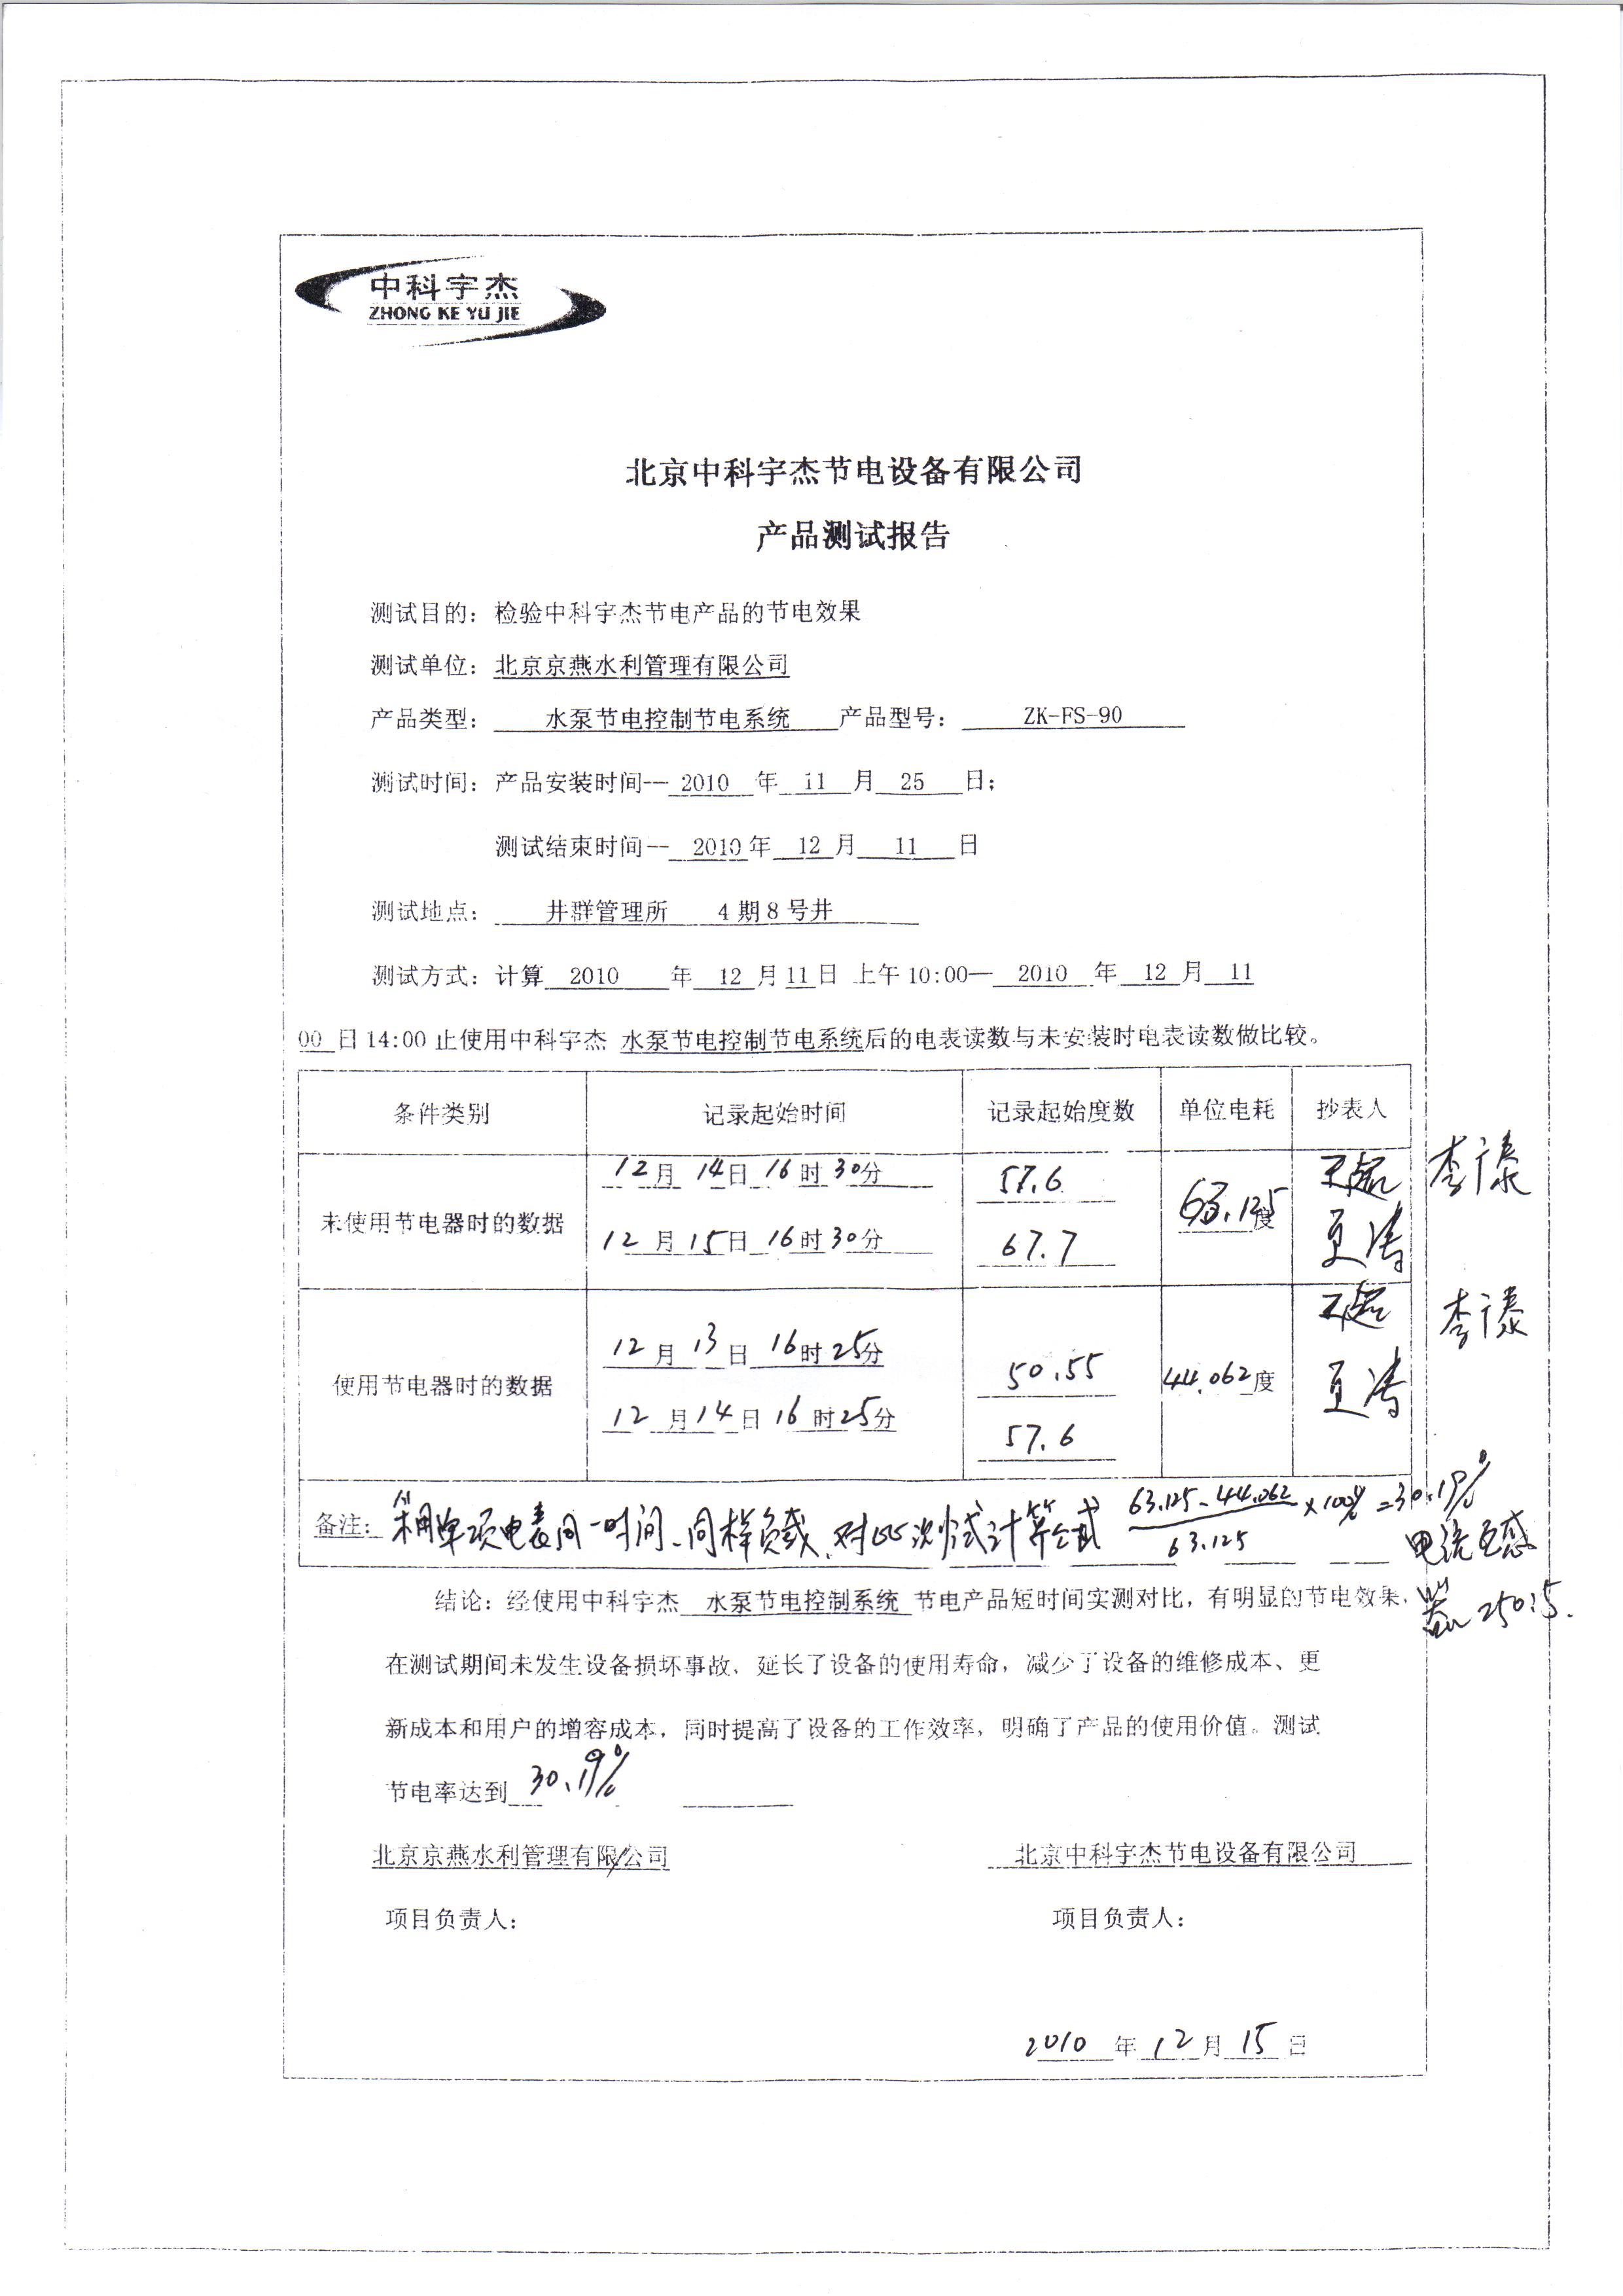 中科宇杰
ZHONG KE YU JIE
北京中科宇杰节电设备有限公司
产品测试报告
测试目的：检验中科宇杰节电产品的节电效果
测试单位：北京京燕水利管理有限公司
产品类型： 水泵节电控制节电系统 产品型号： ZK-FS-90
测试时间：产品安装时间—2010 年 11 月 25 日；
测试结束时间—2010年 12 月 11 日
测试地点： 井群管理所 4期8号井
测试方式：计算 2010 年 12 月11日 上午10:00— 2010 年 12 月 11
00 日14:00止使用中科宇杰 水泵节电控制节电系统后的电表读数与未安装时电表读数做比较。
条件类别 记录起始时间 记录起始度数 单位电耗 抄表人
未使用节电器时的数据
12月 14日 16时30分 57.6
12月 15日 16时30分 67.7
63.125度
李
使用节电器时的数据
12月 13日 16时25分 50.55
12月14日 16时25分 57.6
44.062度
李
备注：采用单项电表同一时间、同样负载、对此次测试计算公式 63.125-44.062/63.125 ×100% =30.19%
电流互感
器250:5.
结论：经使用中科宇杰 水泵节电控制系统 节电产品短时间实测对比，有明显的节电效果，
在测试期间未发生设备损坏事故、延长了设备的使用寿命，减少了设备的维修成本、更
新成本和用户的增容成本，同时提高了设备的工作效率，明确了产品的使用价值。测试
节电率达到 30.19%
北京京燕水利管理有限公司 北京中科宇杰节电设备有限公司
项目负责人： 项目负责人：
2010 年 12 月 15 日